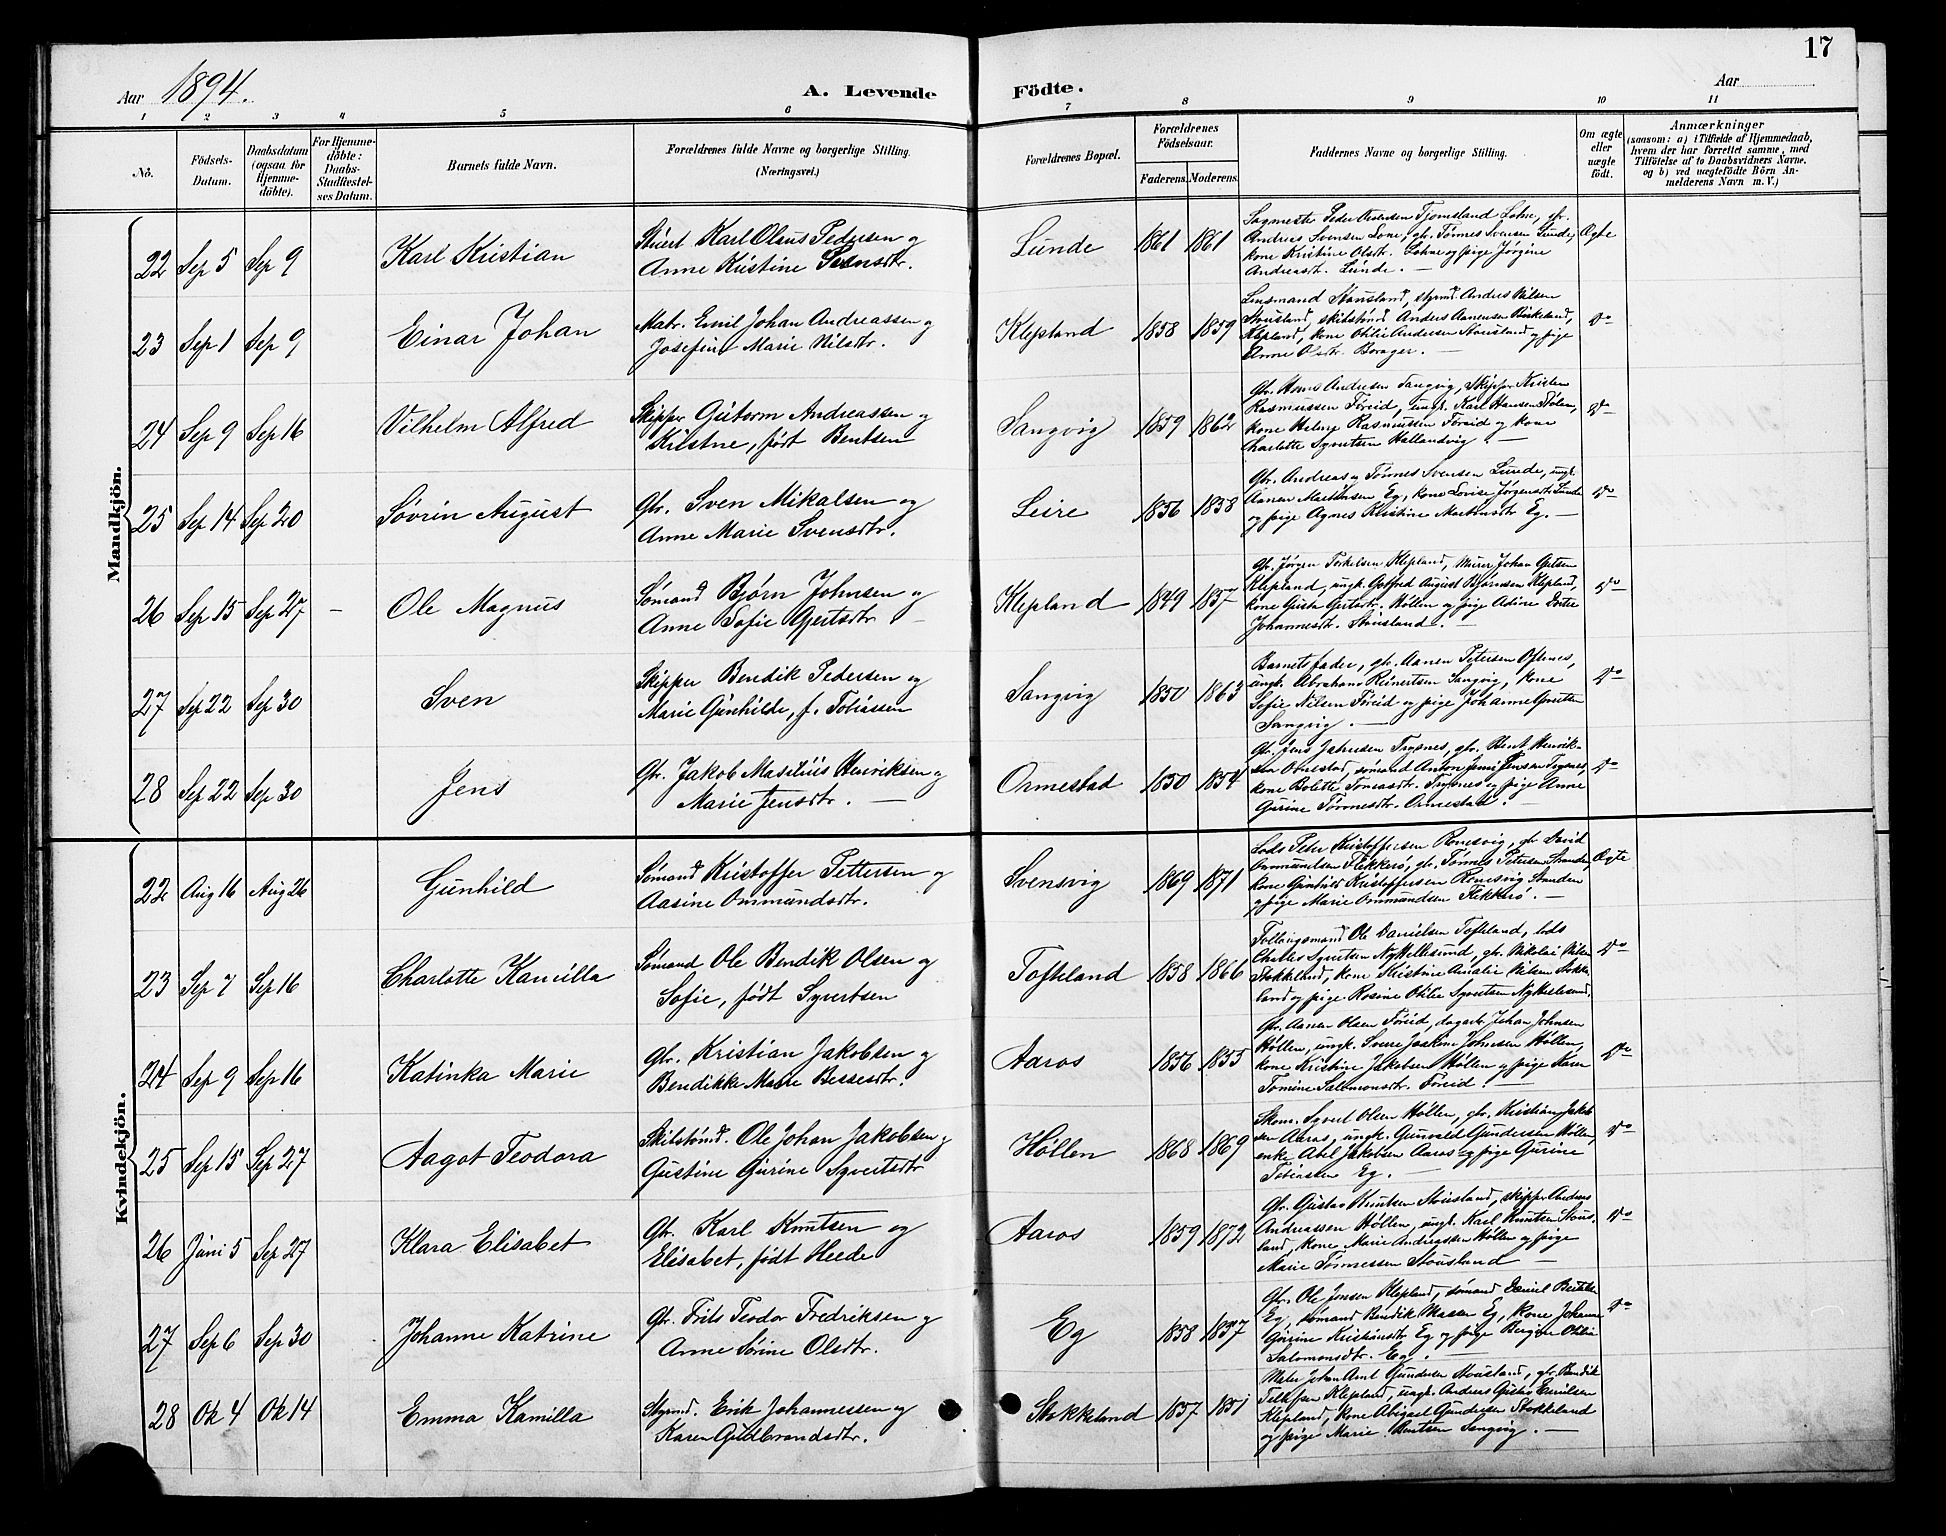 17
Aar 1894.
A. Levende Födte.
Aar
1 2 3 4 5 6 7 8 9 10 11
No.
Födsels-Datum.
Daabsdatum (ogsaa for Hjemme-döbte).
For Hjemme-döbte: Daabs-Stadfæstel-ses Datum.
Barnets fulde Navn.
Forældrenes fulde Navne og borgerlige Stilling. (Næringsvei.)
Forældrenes Bopæl.
Forældrenes Födselsaar.
Faderens. Moderens.
Faddernes Navne og borgerlige Stilling.
Om ægte eller uægte født.
Anmærkninger
(saasom: a) i Tilfælde af Hjemmedaab,
hvem der har forrettet samme, med
Tilføielse af to Daabsvidners Navne.
og b) ved uægtefödte Börn An-
melderens Navn m. V.)
Mandkjön.
22 Sep 5 Sep 9 Karl Kristian
Stuert Karl Olaus Pedersen og
Anne Kristine Svensdtr.
Lunde 1861 1861
Andreas Svensen Lone, gbr. Tønnes Svensen Lunde,
kone Kristine Olsdtr. Lohne og pige Jørgine
Andreasdt. Lunde. —
Ægte
23 Sep 1 Sep 9 Einar Johan
Matr. Emil Johan Andreassen og
Josefine Marie Nilsdtr.
Klepland 1858 1859
Lensmand Stousland, styrmd. Andres Nilsen
Stousland, skilstømd Anders Aanensen Birkeland,
Klepland, kone Otilie Andersen Stousland og pige
Anne Olsdtr. Borager. —
Do
24 Sep 9 Sep 16 Vilhelm Alfred
Skipper Gutorm Andreassen og
Kristne, født Bentsen
Sangvig 1859 1862
Gbr. Hans Andersen Sangvig, Skipper Kristen
Rasmussen Føreid, ungk. Karl Hansen Stølen,
kone Helene Rasmussen Føreid og kone
Charlotte Syvertsen Hallandvig. —
Do
25 Sep 14 Sep 20 Søvrin August
Gbr. Sven Mikalsen og
Anne Marie Svensdtr.
Leire 1856 1858
Gbr. Andreas og Tønnes Svensen Lunde, ungk.
Aanen Martinsen Eg, kone Lovise Jørgensdt. Lunde
og pige Agnes Kristine Martinsdtr Eg. —
Do
26 Sep 15 Sep 27 — Ole Magnus
Sømand Bjørn Johnsen og
Anne Sofie Gjertsdtr —
Klepland 1849 1857
Gbr. Jørgen Torkelsen Klepland, Murer Johan Gjertsen
Klepland, ungk. Gotfred August Bjørnsen Klepland,
kone Gusta Gjertsdtr. Høllen og pige Adine Dortea
Johannesdtr. Stousland. —
Do
27 Sep 22 Sep 30 Sven
Skipper Bendik Pedersen og
Marie Gunhilde, f. Tobiassen
Sangvig 1850 1863
Barnets fader, gbr. Aanen Petersen Oftenes,
ungk. Abraham Reinertsen Sangvig, kone
Sofie Nilsen Føreid og pige Johanne
Sangvig. —
Do
28 Sep 22 Sep 30 Jens
Gbr. Jakob Masilius Henriksen og
Marie Jensdtr. —
Ormestad 1850 1854
Gbr. Jens Jahnsen Trysnes, gbr. Bent Henrik-
sen Ormestad, sømand Anton Jensen Trysnes,
kone Bolette Tomasdtr. Trysnes og pige Anne
Gurine Tønnesdtr. Ormestad. —
Do
Kvindekjön.
22 Aug 16 Aug 26 Gunhild
Sømand Kristoffer Pettersen og
Aasine Ommundsdtr.
Svensvig 1869 1871
Lods Peter Kristoffersen Romsvig, gbr David
Ommundsen Flekkerø, gbr. Tønnes Petersen Stranden,
kone Gunhild Kristoffersen Romsvig Stranden
og pige Marie Ommundsen Flekkerø. —
Ægte
23 Sep 7 Sep 16 Charlotte Kamilla
Sømand Ole Bendik Olsen og
Sofie, født Syvertsen
Tofteland 1858 1866
Ole Danielsen Tofteland, lods
Charles Syvertsen Nykkelesund, gbr. Nikolai Nilsen
Stokkeland, kone Kristine Amalie Nilsen Stokke-
land og pige Rosine Otilie Syvertsen Nykkelesund.
Do
24 Sep 9 Sep 16 Katinka Marie
Gbr. Kristian Jakobsen og
Bendikke Marie Bessesdtr.
Aaros 1856 1855
Gbr. Aanen Olsen Føreid, dagarb. Johan Johnsen
Høllen, ungk. Sverre Joakim Johnsen Høllen,
kone Kristine Jakobsen Høllen og pige Karen
Tomine Salomonsdtr. Føreid. —
Do
25 Sep 15 Sep 27 Aagot Teodora
Skilstømd. Ole Johan Jakobsen og
Gustine Gurine Syvertsdtr
Høllen 1868 1869
Skom. Syvert Olsen Høllen, gbr. Kristian Jakob-
sen Aaros, ungk. Gunvald Gundersen Høllen,
enke Abel Jakobsen Aaros og pige Gurine
Tobiasen Eg. —
Do
26 Juni 5 Sep 27 Klara Elisabet
Gbr. Karl Knutsen og
Elisabet, født Heede
Aaros 1859 1872
Gbr. Gustav Knutsen Stousland, skipper Andreas
Andreassen Høllen, ungk. Karl Knutsen Stous-
land, kone Marie Andreassen Høllen og pige
Marie Tønnessen Stousland —
Do
27 Sep 6 Sep 30 Johanne Katrine
Gbr. Frits Teodor Fredriksen og
Anne Sørine Olsdtr.
Eg 1858 1857
Gbr. Ole Jensen Klepland, sømand Daniel
Eg, sømand Bendik Eg, kone Johanne
Gurine Kristiansdt Eg og pige Bergine Otilie
Salomonsdtr. Eg. —
Do
28 Ok 4 Ok 14 Emma Kamilla
Styrmd. Erik Johannessen og
Karen Guldbrandsdtr.
Stokkeland 1857 1851
Maler Johan Arnt Gundersen Stousland, gbr. Bendik
Klepland, ungk. Anders Gustav Emilsen
Klepland, kone Abigael Gundersen Stokkeland
og pige Marie Bentsen Sangvig. —